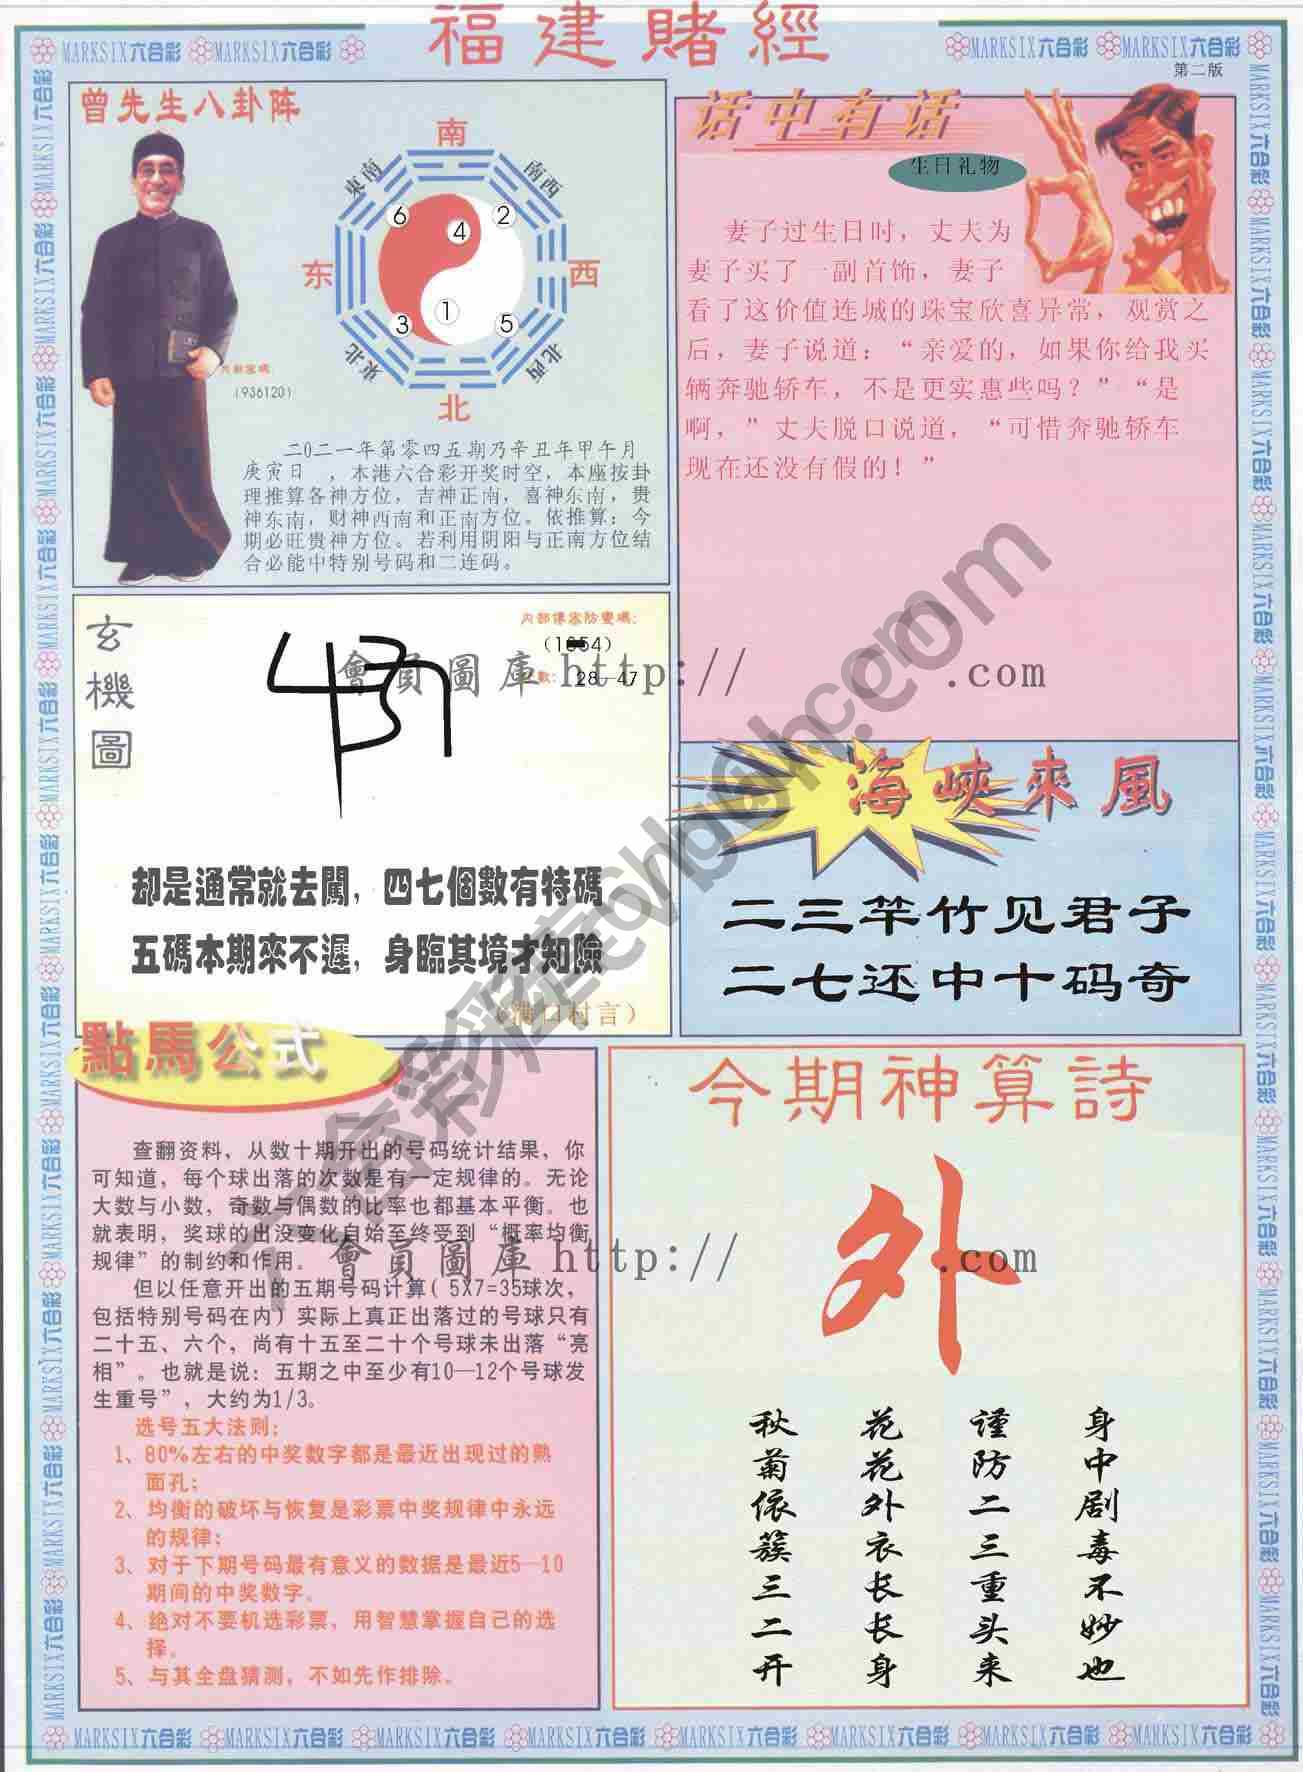 福建賭經
MARKSIX六合彩 MARKSIX六合彩
MARKSIX六合彩 MARKSIX六合彩
第二版
曾先生八卦阵
南
東南
南西
6
4
2
东
西
3
1
5
東北
北西
北
(936120)
二〇二一年第零四五期乃辛丑年甲午月
庚寅日 ,本港六合彩开奖时空,本座按卦
理推算各神方位,吉神正南,喜神东南,贵
神东南,财神西南和正南方位。依推算:今
期必旺贵神方位。若利用阴阳与正南方位结
合必能中特别号码和二连码。
话中有话
生日礼物
妻子过生日时,丈夫为
妻子买了一副首饰,妻子
看了这价值连城的珠宝欣喜异常,观赏之
后,妻子说道:“亲爱的,如果你给我买
辆奔驰轿车,不是更实惠些吗?”“是
啊,”丈夫脱口说道,“可惜奔驰轿车
现在还没有假的!”
玄機圖
28—47
會員圖庫 http:// .com
却是通常就去闖,四七個數有特碼
五碼本期來不遲,身臨其境才知險
海峽來風
二三竿竹见君子
二七还中十码奇
點馬公式
查翻资料,从数十期开出的号码统计结果,你
可知道,每个球出落的次数是有一定规律的。无论
大数与小数,奇数与偶数的比率也都基本平衡。也
就表明,奖球的出没变化自始至终受到“概率均衡
规律”的制约和作用。
但以任意开出的五期号码计算( 5X7=35球次,
包括特别号码在内)实际上真正出落过的号球只有
二十五、六个,尚有十五至二十个号球未出落“亮
相”。也就是说:五期之中至少有10—12个号球发
生重号”,大约为1/3。
选号五大法则:
1、80%左右的中奖数字都是最近出现过的熟
面孔;
2、均衡的破坏与恢复是彩票中奖规律中永远
的规律;
3、对于下期号码最有意义的数据是最近5—10
期间的中奖数字。
4、绝对不要机选彩票,用智慧掌握自己的选
择。
5、与其全盘猜测,不如先作排除。
今期神算詩
外
會員圖庫 http:// .com
身中剧毒不妙也
谨防二三重头来
花花外衣长长身
秋菊依簇三二开
MARKSIX六合彩 MARKSIX六合彩 MARKSIX六合彩 MARKSIX六合彩 MARKSIX六合彩 MARKSIX六合彩 MARKSIX六合彩 MARKSIX六合彩